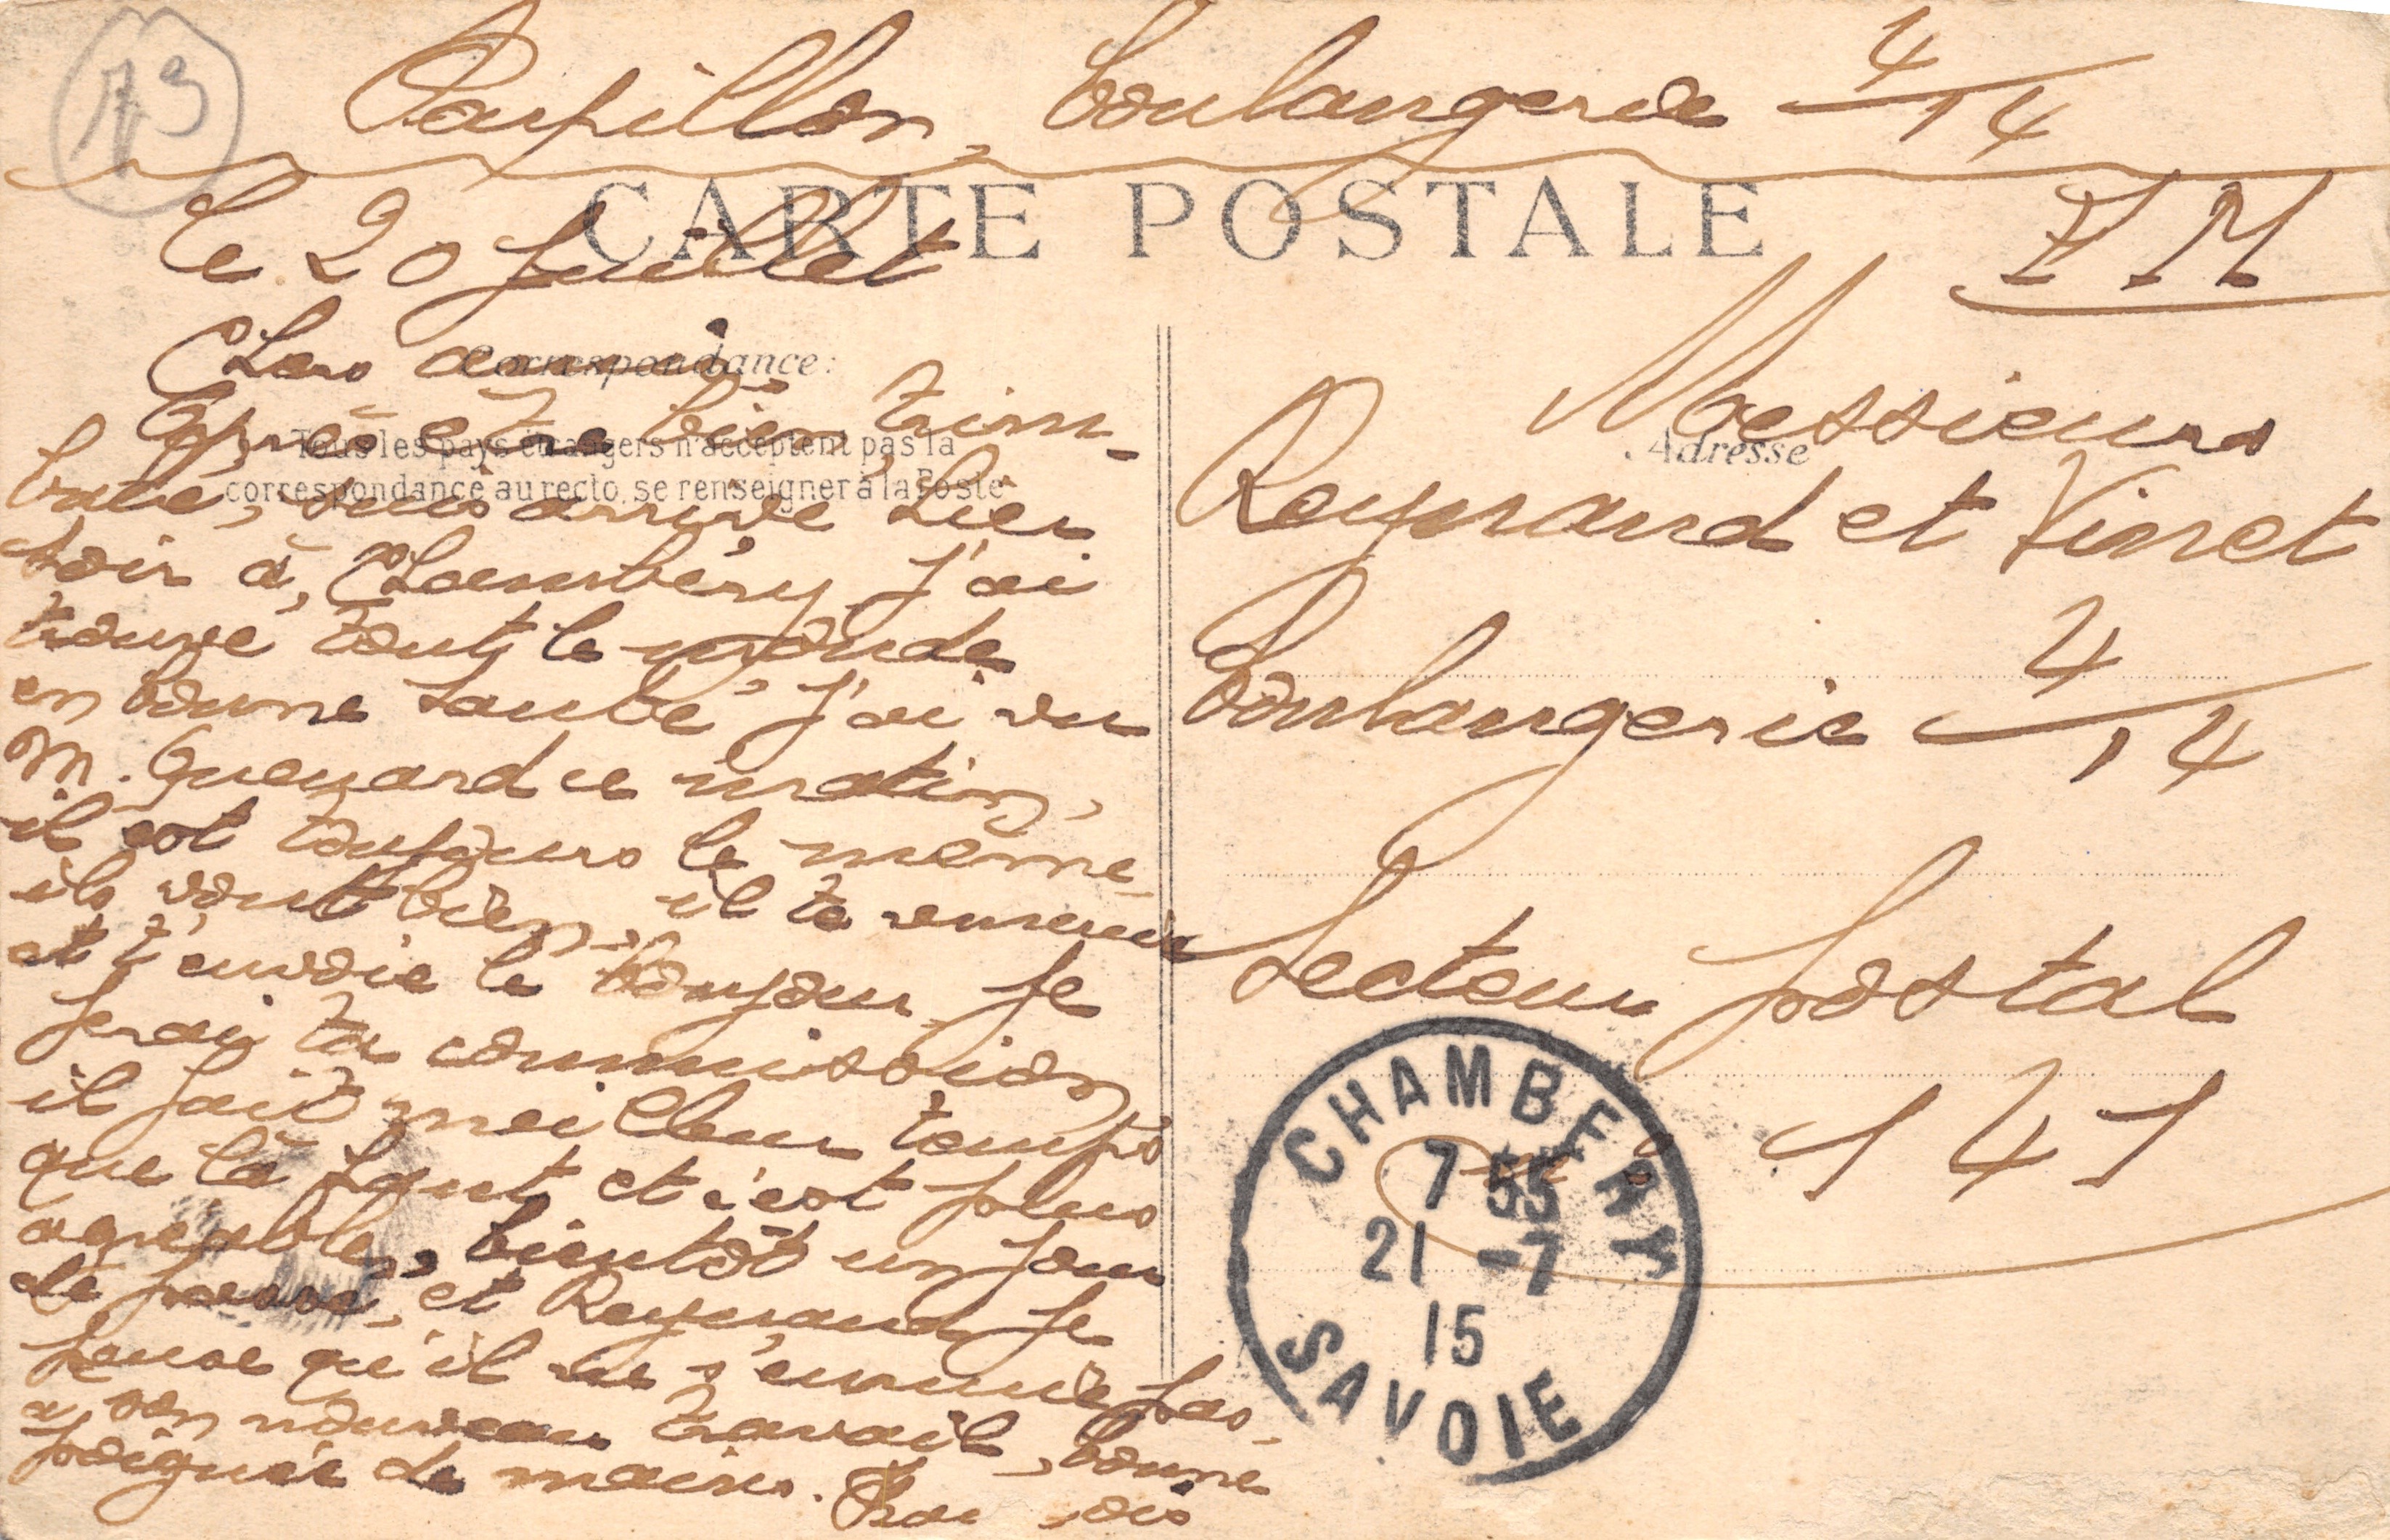 73
Papillon, boulangerie 4/14
CARTE POSTALE
F M
le 20 Juillet
Correspondance:
Chers amis
Après être bien trim-
Tous les pays étrangers n'acceptent pas la
correspondance au recto, se renseigner à la Poste
balé, suis arrivé hier
soir à Chambéry J'ai
trouvé tout le monde
en bonne santé, J'ai vu
M. Guenard ce matin,
il est toujours le même
ils vont bien, il te remercie
et t'envoie le bonjour, Je
ferai ta commission
il fait meilleur temps
que là haut et c'est plus
agréable, bientôt un jour
de passé, et Reynaud Je
pense qu'il ne s'ennuie pas
a son nouveau travail, bonne
poignée de mains.
Messieurs
Adresse
Reynaud et Vinet
Boulangerie 4/14
Secteur postal
n° 147
CHAMBERY
7 55
21 -7
15
SAVOIE